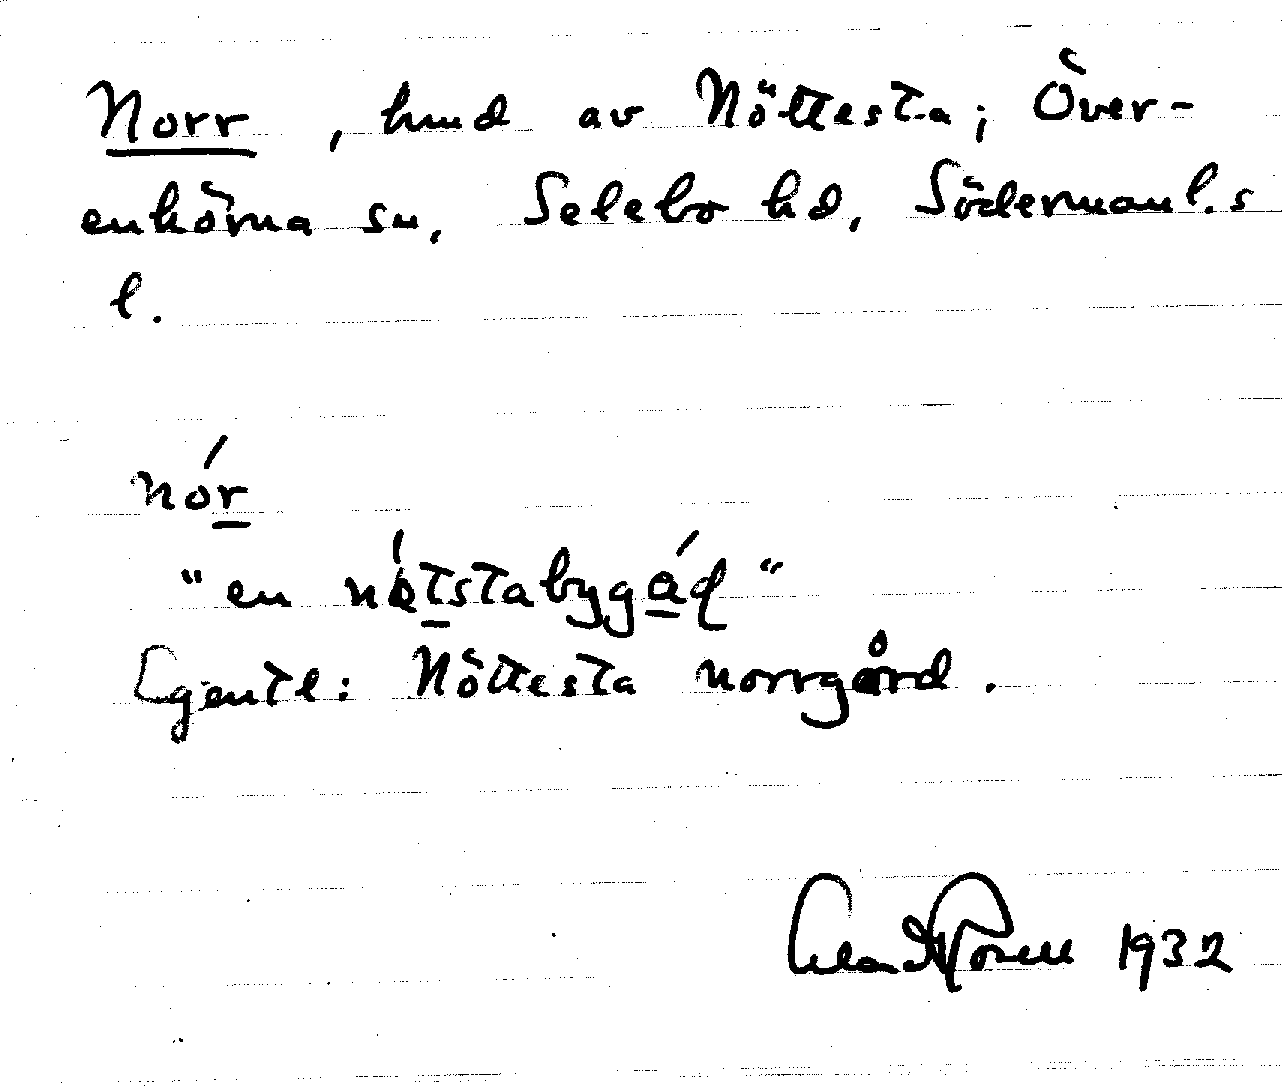 Norr, hmd av Nöttesta; Över-
enhörna sn, Selebo hd, Södermanl.s
l.
nór
"en nötstabygád"
Egentl: Nöttesta norrgård.
1932